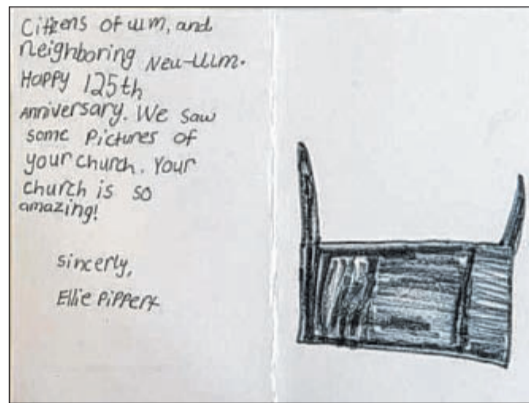 Citizens of ulm, and
neighboring Neu-ulm.
Happy 125th
Anniversary. We saw
some Pictures of
your church. Your
church is so
amazing!
sincerly,
Ellie Pippert